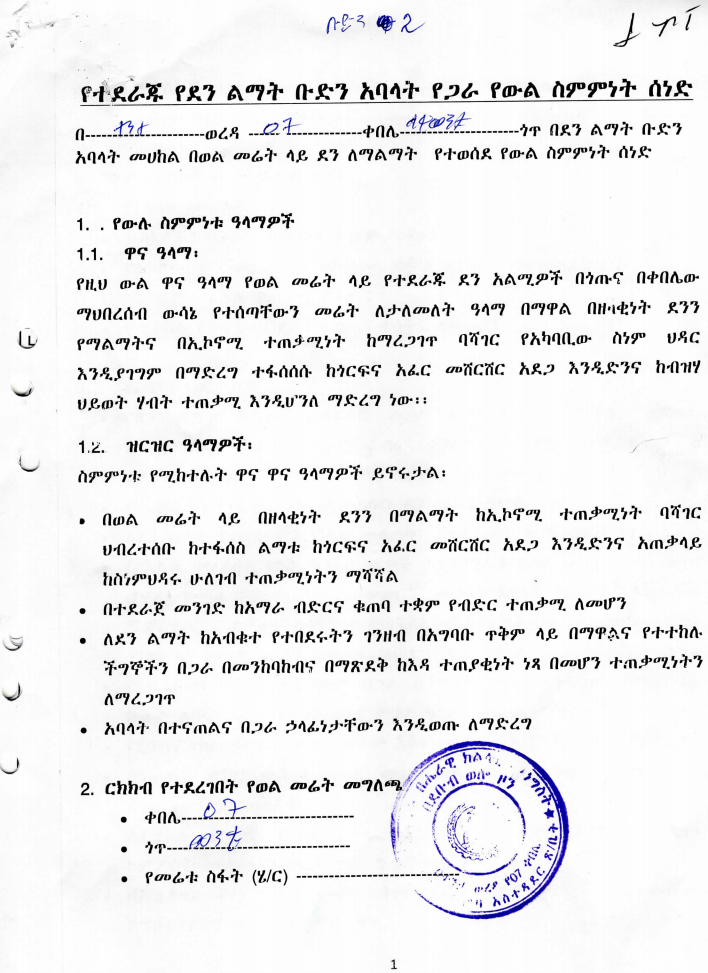 ቡድን 2
የተደራጁ የደን ልማት ቡድን አባላት የጋራ የውል ስምምነት ሰነድ
በ--------------------ወረዳ ---07---------------ቀበሌ--------------------ጎጥ በደን ልማት ቡድን
አባላት መሀከል በወል መሬት ላይ ደን ለማልማት የተወሰደ የውል ስምምነት ሰነድ
1. . የውሉ ስምምነቱ ዓላማዎች
1.1. ዋና ዓላማ፡
የዚህ ውል ዋና ዓላማ የወል መሬት ላይ የተደራጁ ደን አልሚዎች በጎጡና በቀበሌው
ማህበረሰብ ውሳኔ የተሰጣቸውን መሬት ለታለመለት ዓላማ በማዋል በዘላቂነት ደንን
የማልማትና በኢኮኖሚ ተጠቃሚነት ከማረጋገጥ ባሻገር የአካባቢው ስነም ህዳር
እንዲያገግም በማድረግ ተፋሰሰሱ ከጎርፍና አፈር መሸርሸር አደጋ እንዲድንና ከብዝሃ
ህይወት ሃብት ተጠቃሚ እንዲሆንለ ማድረግ ነው፡፡
1.2. ዝርዝር ዓላማዎች፡
ስምምነቱ የሚከተሉት ዋና ዋና ዓላማዎች ይኖሩታል፡
• በወል መሬት ላይ በዘላቂነት ደንን በማልማት ከኢኮኖሚ ተጠቃሚነት ባሻገር
ህብረተሰቡ ከተፋሰስ ልማቱ ከጎርፍና አፈር መሸርሸር አደጋ እንዲድንና አጠቃላይ
ከስነምህዳሩ ሁለገብ ተጠቃሚነትን ማሻሻል
• በተደራጀ መንገድ ከአማራ ብድርና ቁጠባ ተቋም የብድር ተጠቃሚ ለመሆን
• ለደን ልማት ከአብቁተ የተበደሩትን ገንዘብ በአግባቡ ጥቅም ላይ በማዋልና የተተከሉ
ችግኞችን በጋራ በመንከባከብና በማጽደቅ ከእዳ ተጠያቂነት ነጻ በመሆን ተጠቃሚነትን
ለማረጋገጥ
• አባላት በተናጠልና በጋራ ኃላፊነታቸውን እንዲወጡ ለማድረግ
2. ርክክብ የተደረገበት የወል መሬት መግለጫ
• ቀበሌ---07-------------------------
• ጎጥ-------------------------------
• የመሬቱ ስፋት (ሄ/ር) ----------------------------
በደቡብ ወሎ ዞን
ወረዳ የ07 ቀበሌ
አስተዳደር ጽ/ቤት
1